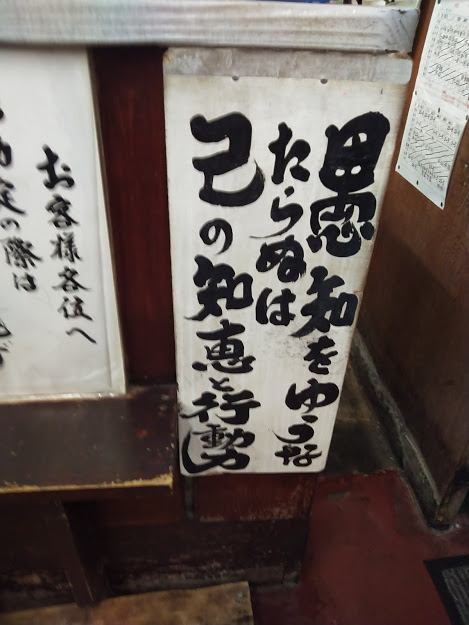 愚知をゆうな
たらぬは
己の知恵と行動力
お客様各位へ
定の際は